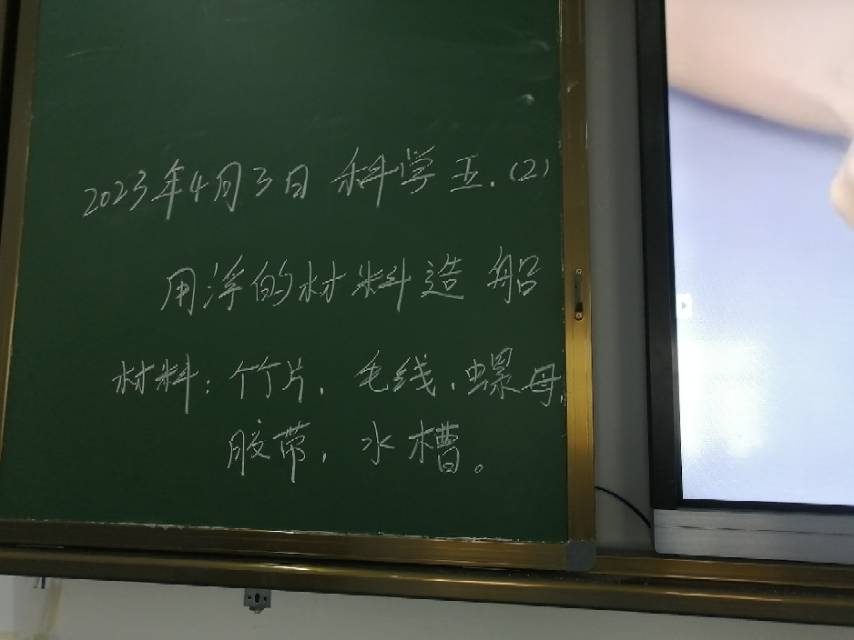 2023年4月3日 科学 五.(2)
用浮的材料造船
材料：竹片，毛线，螺母，
胶带，水槽。